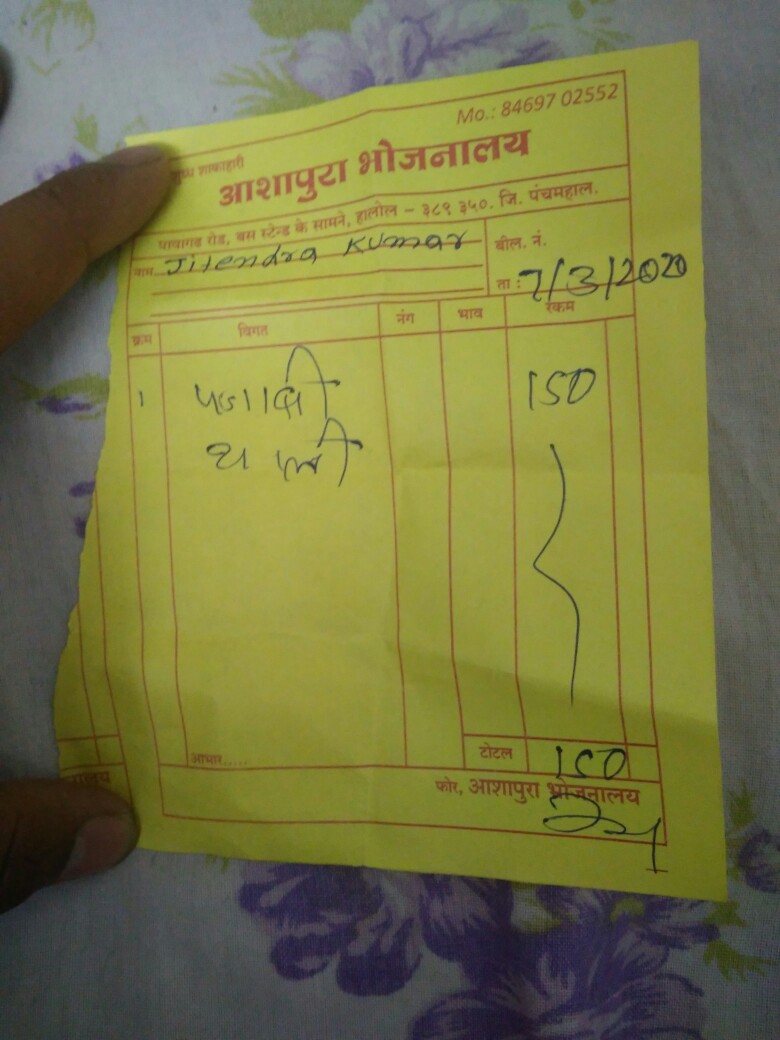 Mo.: 84697 02552
शाकाहारी
आशापुरा भोजनालय
पावागड रोड, बस स्टेन्ड के सामने, हालोल - ३८९ ३५०. जि. पंचमहाल.
नाम Jitendra Kumar
बील. नं.
ता : 7/3/2020
क्रम विगत नंग भाव रकम
1 पंजाबी 150
थाली
आभार.....
टोटल 150
फोर, आशापुरा भोजनालय